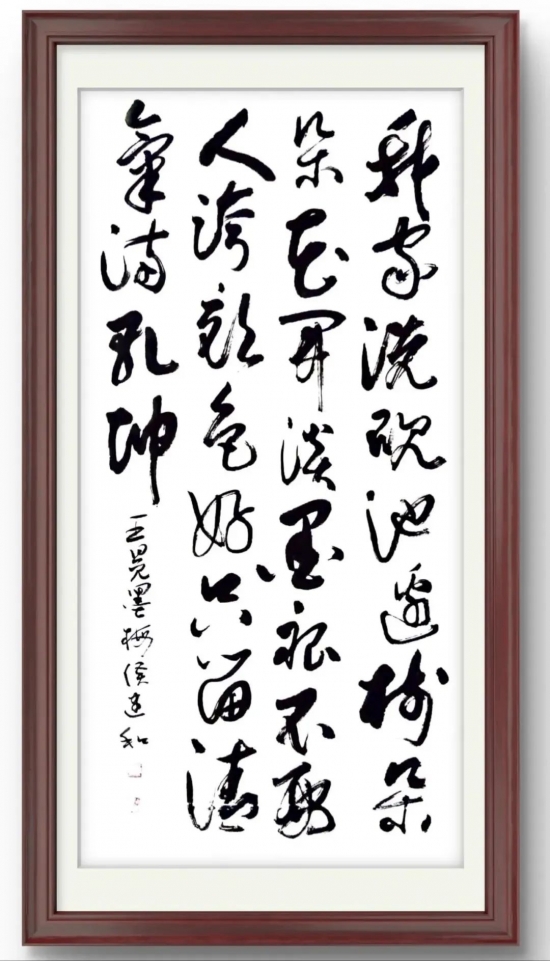 我家洗砚池邊树朵
朵花開淡墨痕不要
人誇颜色好只留清
氣满乾坤
王冕墨梅侯建和